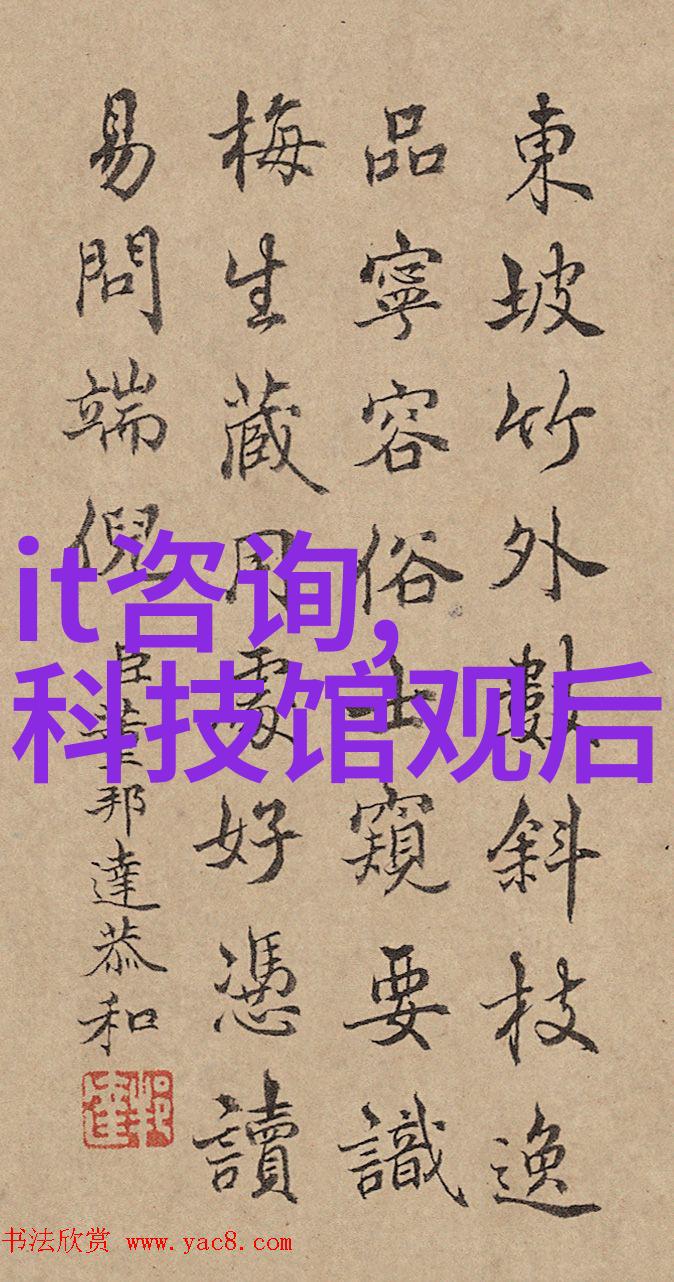 東坡竹外數斜枝逸
品寧容俗士窺要識
梅生蔵用處好憑讀
易問端倪
臣董邦達恭和
it咨询,
科技馆观后
书法欣赏 www.yac8.com